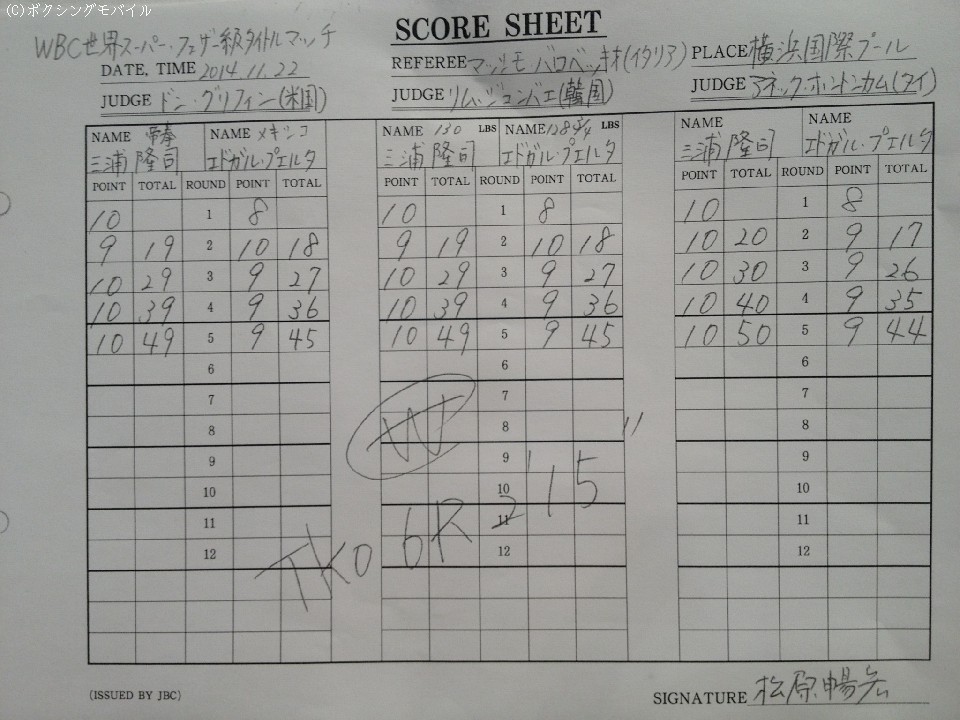 (C)ボクシングモバイル
SCORE SHEET
WBC世界スーパー・フェザー級タイトルマッチ
DATE, TIME 2014.11.22
REFEREE マッシモ・バロベッキオ(イタリア)
PLACE 横浜国際プール
JUDGE ドン・グリフィン(米国)
JUDGE リム・ジュンバエ(韓国)
JUDGE アネック・ホントンカム(タイ)
NAME 帝拳 NAME メキシコ NAME 130 LBS NAME 128 3/4 LBS NAME NAME
三浦 隆司 エドガル・プエルタ 三浦 隆司 エドガル・プエルタ 三浦 隆司 エドガル・プエルタ
POINT TOTAL ROUND POINT TOTAL POINT TOTAL ROUND POINT TOTAL POINT TOTAL ROUND POINT TOTAL
10 1 8 10 1 8 10 1 8
9 19 2 10 18 9 19 2 10 18 10 20 2 9 17
10 29 3 9 27 10 29 3 9 27 10 30 3 9 26
10 39 4 9 36 10 39 4 9 36 10 40 4 9 35
10 49 5 9 45 10 49 5 9 45 10 50 5 9 44
6 6 6
7 7 7
8 W 8 8
9 9 9
10 10 10
11 11 11
TKO 6R 2'15"
12 12 12
(ISSUED BY JBC)
SIGNATURE 松原暢宏